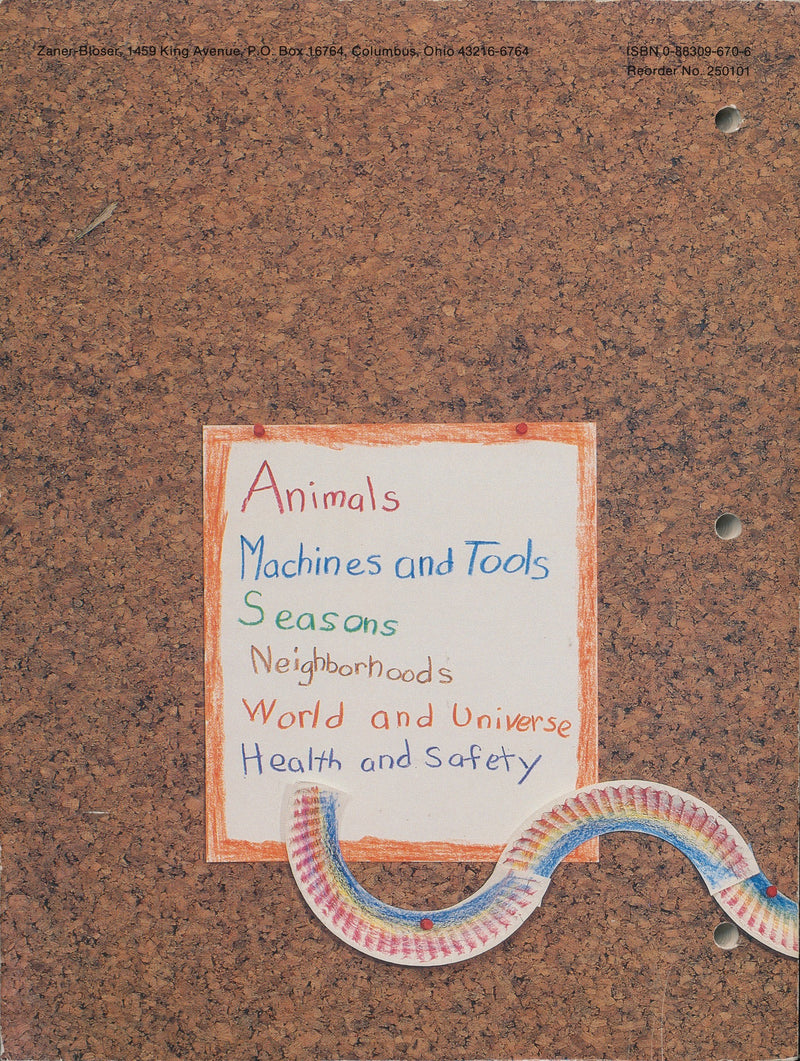 Zaner-Bloser, 1459 King Avenue, P.O. Box 16764, Columbus, Ohio 43216-6764
ISBN 0-88309-670-6
Reorder No. 250101
Animals
Machines and Tools
Seasons
Neighborhoods
World and Universe
Health and Safety